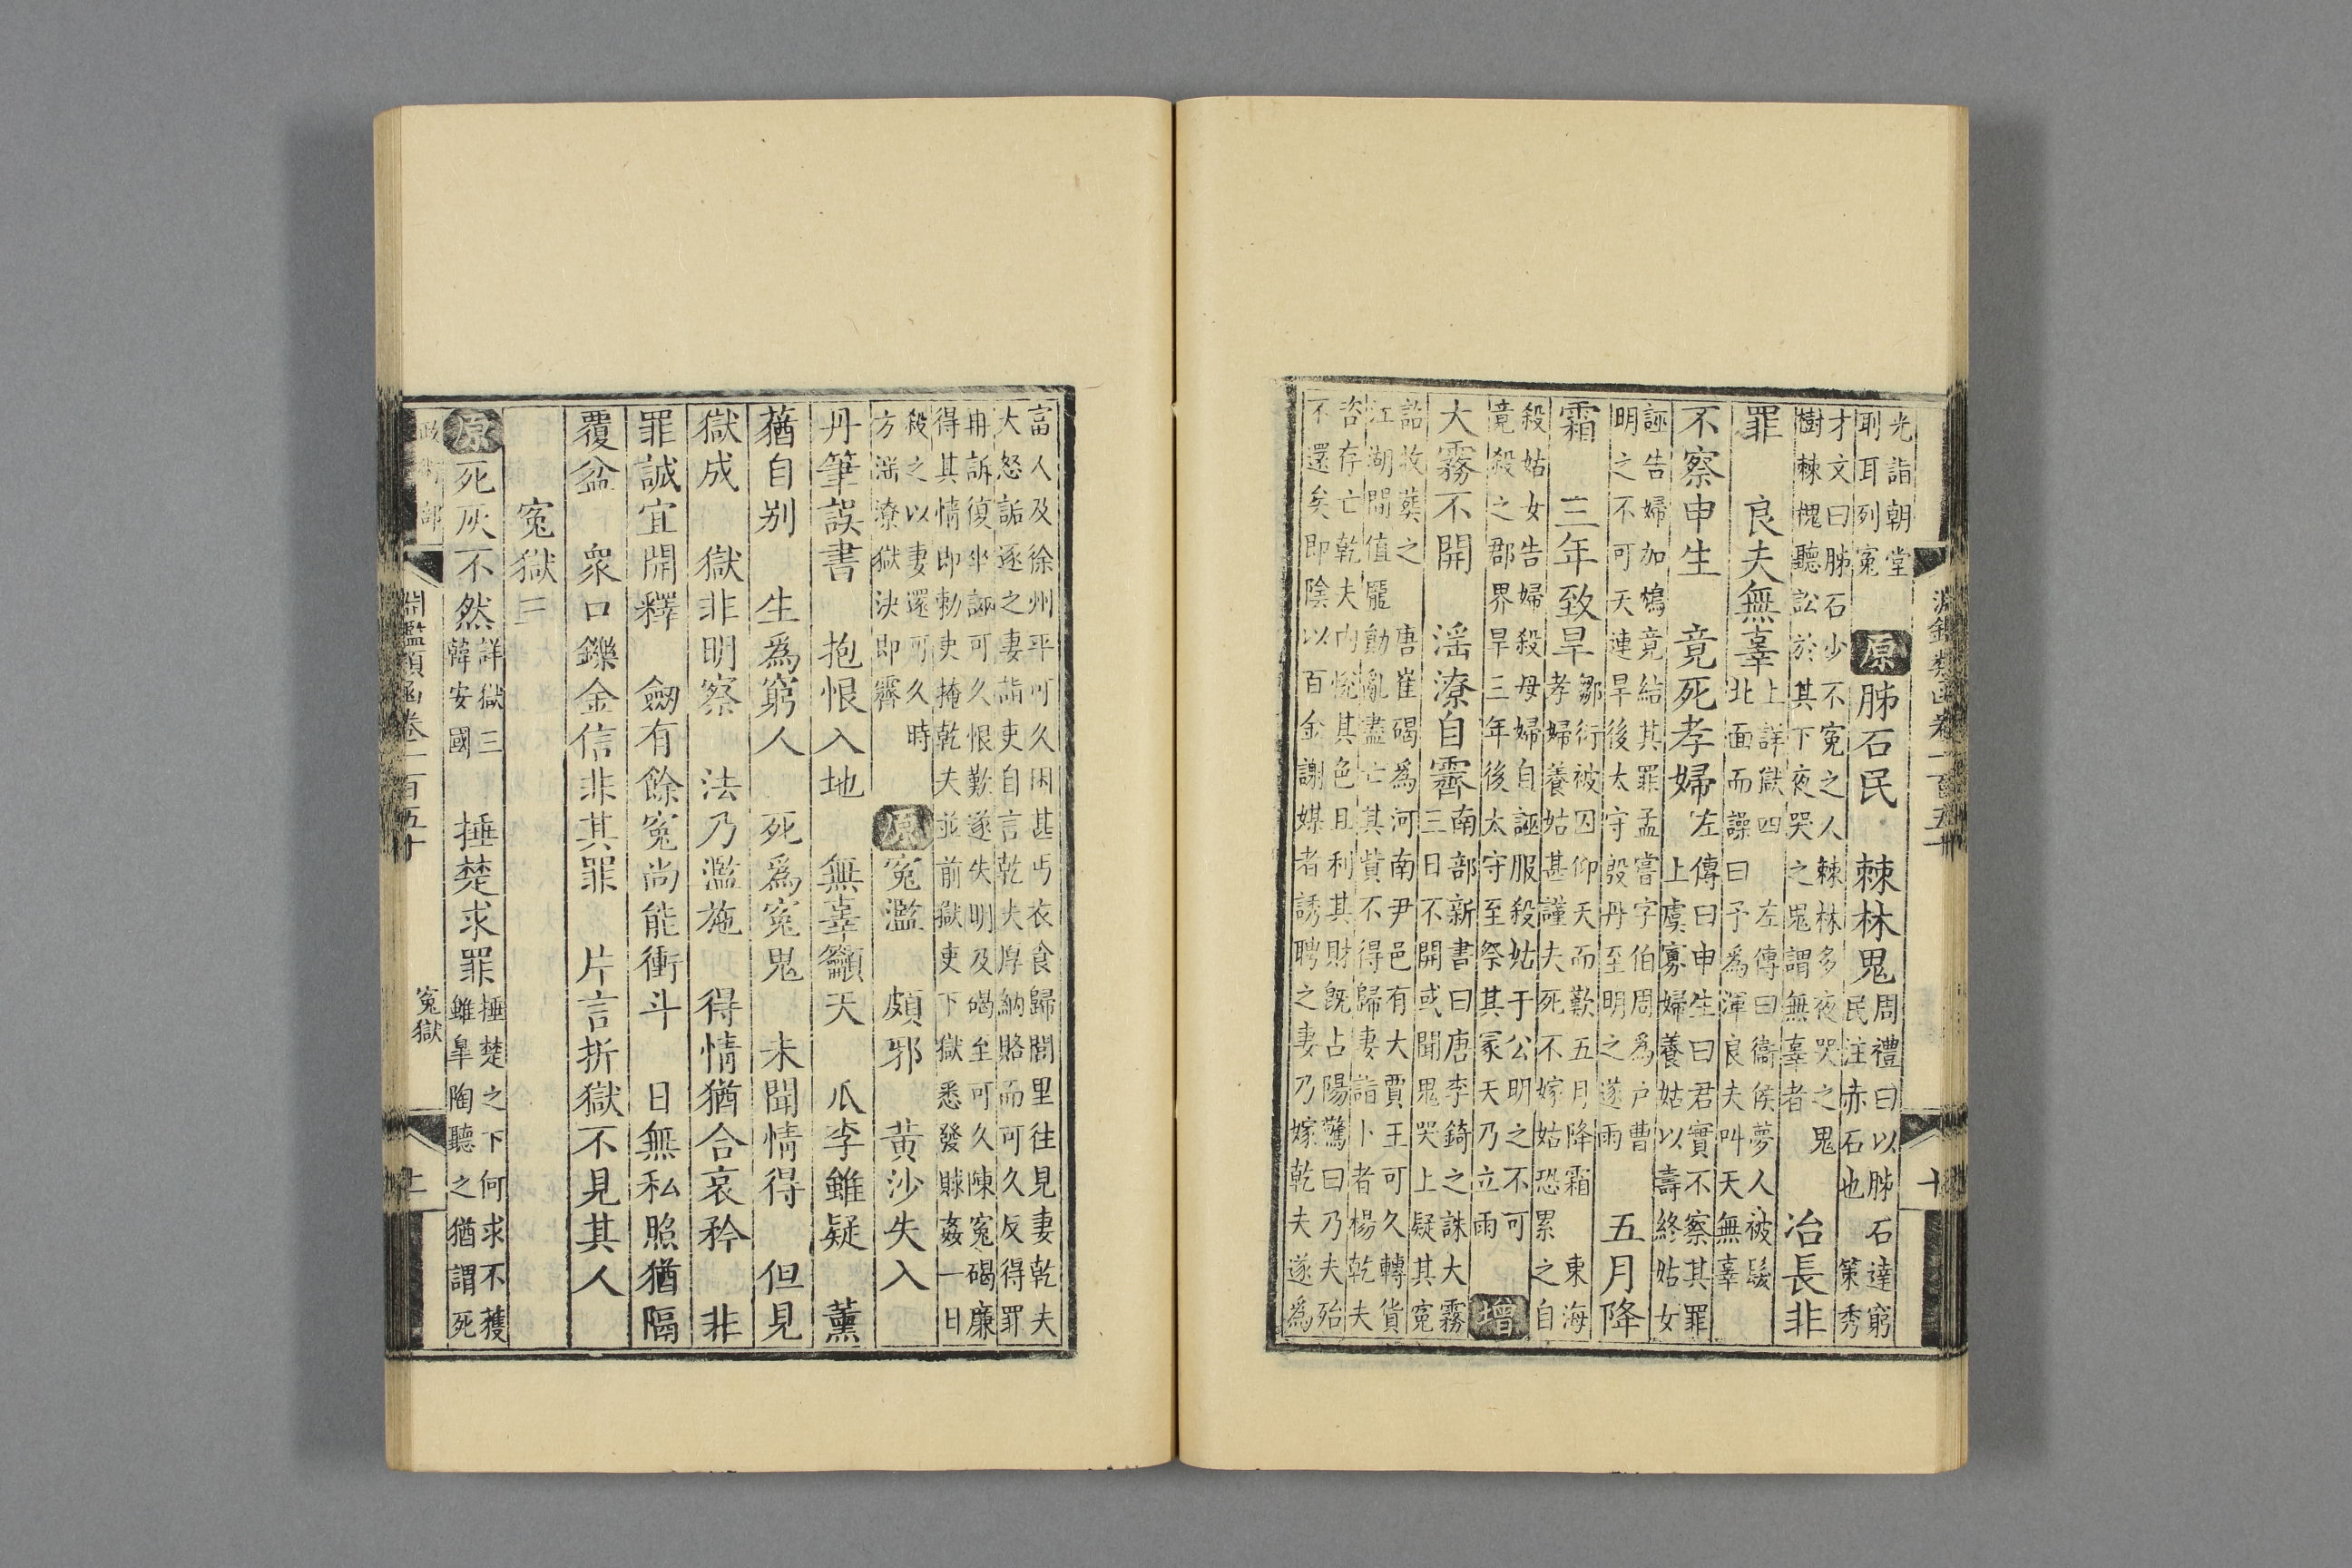 淵鑑類函卷一百五十 十
光詣朝堂刵耳列寃 原 肺石民 棘林鬼 周禮曰以肺石達窮民注赤石也 策秀
才文曰肺石少不寃之人棘林多夜哭之鬼樹棘槐聽訟於其下夜哭之鬼謂無辜者 冶長非
罪 良夫無辜 上詳獄四 左傳曰衞侯夢人被髮北面而譟曰予為渾良夫叫天無辜
不察申生 竟死孝婦 左傳曰申生曰君實不察其罪上虞寡婦養姑以壽終姑女
誣告婦加鴆竟結其罪孟嘗字伯周為戶曹明之不可天連旱後太守殷丹至明之遂雨 五月降
霜 三年致旱 鄒衍被囚仰天而歎五月降霜 東海孝婦養姑甚謹夫死不嫁姑恐累之自
殺姑女告婦殺母婦自誣服殺姑于公明之不可竟殺之郡界旱三年後太守至祭其冢天乃立雨 增
大霧不開 滛潦自霽 南部新書曰唐李錡之誅大霧三日不開或聞鬼哭上疑其寃
詔收葬之 唐崔碣為河南尹邑有大賈王可久轉貨江湖間值龎勛亂盡亡其貲不得歸妻詣卜者楊乾夫
咨存亡乾夫内悅其色且利其財旣占陽驚曰乃夫殆不還矣即陰以百金謝媒者誘聘之妻乃嫁乾夫遂為
富人及徐州平可久困甚丐衣食歸閭里往見妻乾夫大怒詬逐之妻詣吏自言乾夫厚納賂而可久反得罪
再訴復坐誣可久恨歎遂失明及碣至可久陳寃碣廉得其情即勅吏掩乾夫並前獄吏下獄悉發賕姦一日
殺之以妻還可久時方滛潦獄決即霽 原 寃濫 頗邪 黄沙失入
丹筆誤書 抱恨入地 無辜籲天 瓜李雖疑 薰
蕕自别 生為窮人 死為寃鬼 未聞情得 但見
獄成 獄非明察 法乃濫施 得情猶合哀矜 非
罪誠宜開釋 劒有餘寃尚能衝斗 日無私照猶隔
覆盆 衆口鑠金信非其罪 片言折獄不見其人
寃獄三
原 死灰不然 詳獄三韓安國 捶楚求罪 捶楚之下何求不獲雖臯陶聽之猶謂死
政術部 淵鑑類函卷一百五十 寃獄